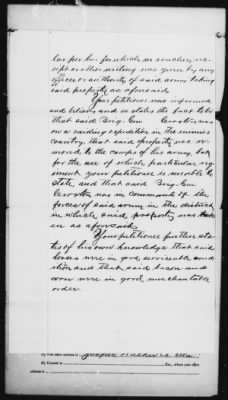 lar per lb. for which no voucher, re-
ceipt or other writing was given by any
officer or authority of said army taking
said property as aforesaid.
Your petitioner was informed
and believes and so states the fact to be
that said Brig. Gen Croxton was
on a raiding expedition in the enemies
country, that said property was re-
moved to the camps of his army, but
for the use of which particular reg-
iment your petitioner is unable to
state, and that said Brig. Gen.
Croxton was in command of the
forces of said army in the district
in which said property was tak-
en as aforesaid.
Your petitioner further sta-
tes of his own knowledge that said
horses were in good serviceable cond-
ition and that said bacon and
corn were in good, merchantable
order.